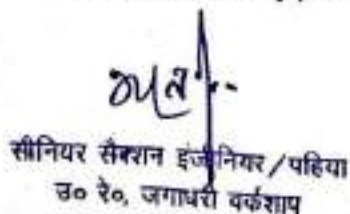 सीनियर सैक्शन इंजीनियर/पहिया
उ० रे०, जगाधरी वर्कशाप